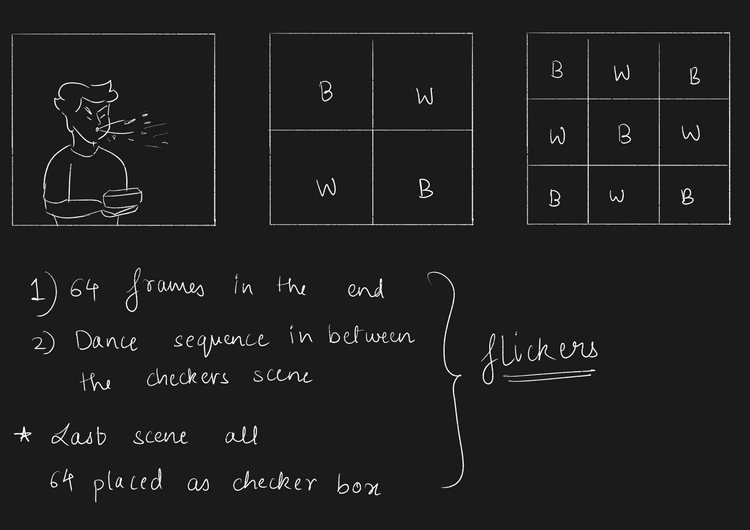 B W
W B
B W B
W B W
B W B
1) 64 frames in the end
2) Dance sequence in between
the checkers scene
flickers
* Last scene all
64 placed as checker box